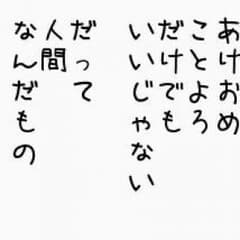 あけおめ
ことよろ
だけでも
いいじゃない
だって
人間
なんだもの